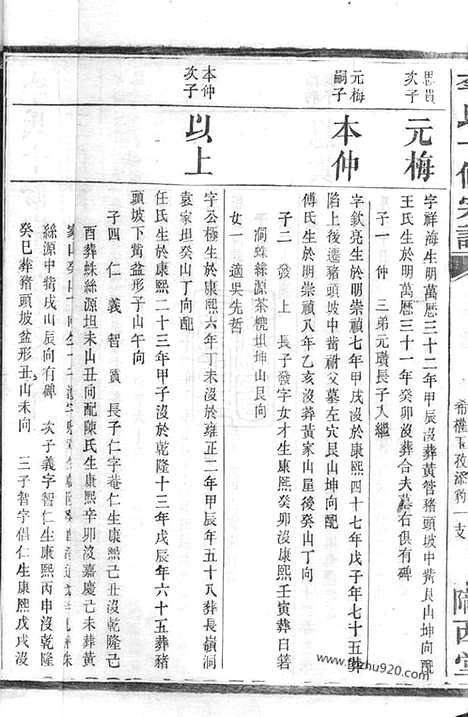 思貴
次子
元梅
字祥海生明萬曆三十二年甲辰沒葬黃管豬頭坡中嘴艮山坤向配
王氏生於明萬曆三十一年癸卯沒葬合夫墓右俱有碑
子一 仲 三弟元 長子入繼
元梅
嗣子
本仲
字欽亮生於明崇禎七年沒於康熙四十七年戊子年七十五葬
陷上後邊豬頭坡中嘴祔父墓左穴艮山坤向配
傅氏生於明崇禎八年乙亥沒葬黃家山屋後癸山丁向
子二 發 上 長子發字女才生康熙癸卯沒康熙壬寅葬白箬
洞蛛絲源茶欖坦坤山艮向
女一 適吳先哲
本仲
次子
以上
字公極生於康熙六年丁未沒於雍正二年甲辰年五十八葬長嶺洞
袁家坦癸山丁向配
任氏生於康熙二十三年甲子沒於乾隆十三年戊辰年六十五葬豬
頭坡下嘴盆形子山午向
子四 仁 義 智 質 長子仁字菴仁生康熙己丑沒乾隆己
酉葬蛛絲源坦未山丑向配陳氏生康熙辛卯沒嘉慶己未葬黃
絲源中嘴戌山辰向有碑 次子義字智仁生康熙丙申沒乾隆
癸巳葬豬頭坡盆形丑山未向 三子智字倡仁生康熙戊戌沒
一支
隴西堂